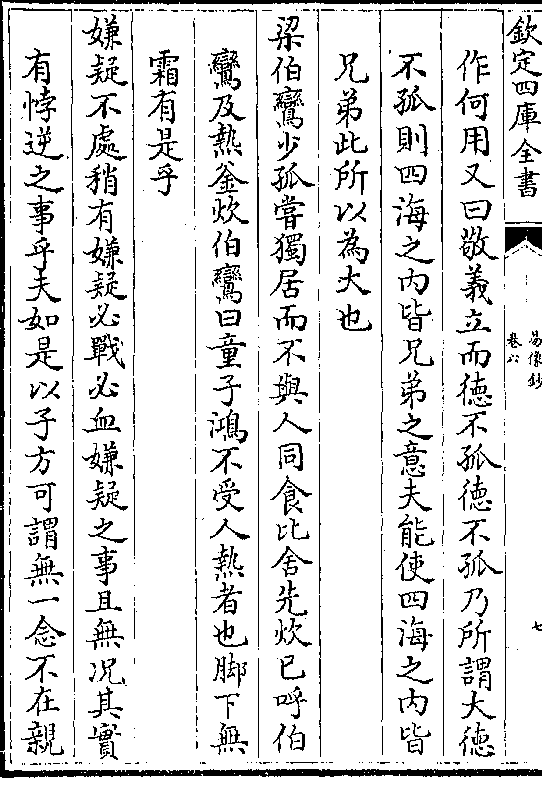 欽定四庫全書
易像鈔
卷六
七
作何用又曰敬義立而德不孤德不孤乃所謂大德
不孤則四海之內皆兄弟之意夫能使四海之內皆
兄弟此所以為大也
梁伯鸞少孤嘗獨居而不與人同食比舍先炊已呼伯
鸞及熱釜炊伯鸞曰童子鴻不受人熱者也脚下無
霜有是乎
嫌疑不處稍有嫌疑必戰必血嫌疑之事且無况其實
有悖逆之事乎夫如是以子方可謂無一念不在親